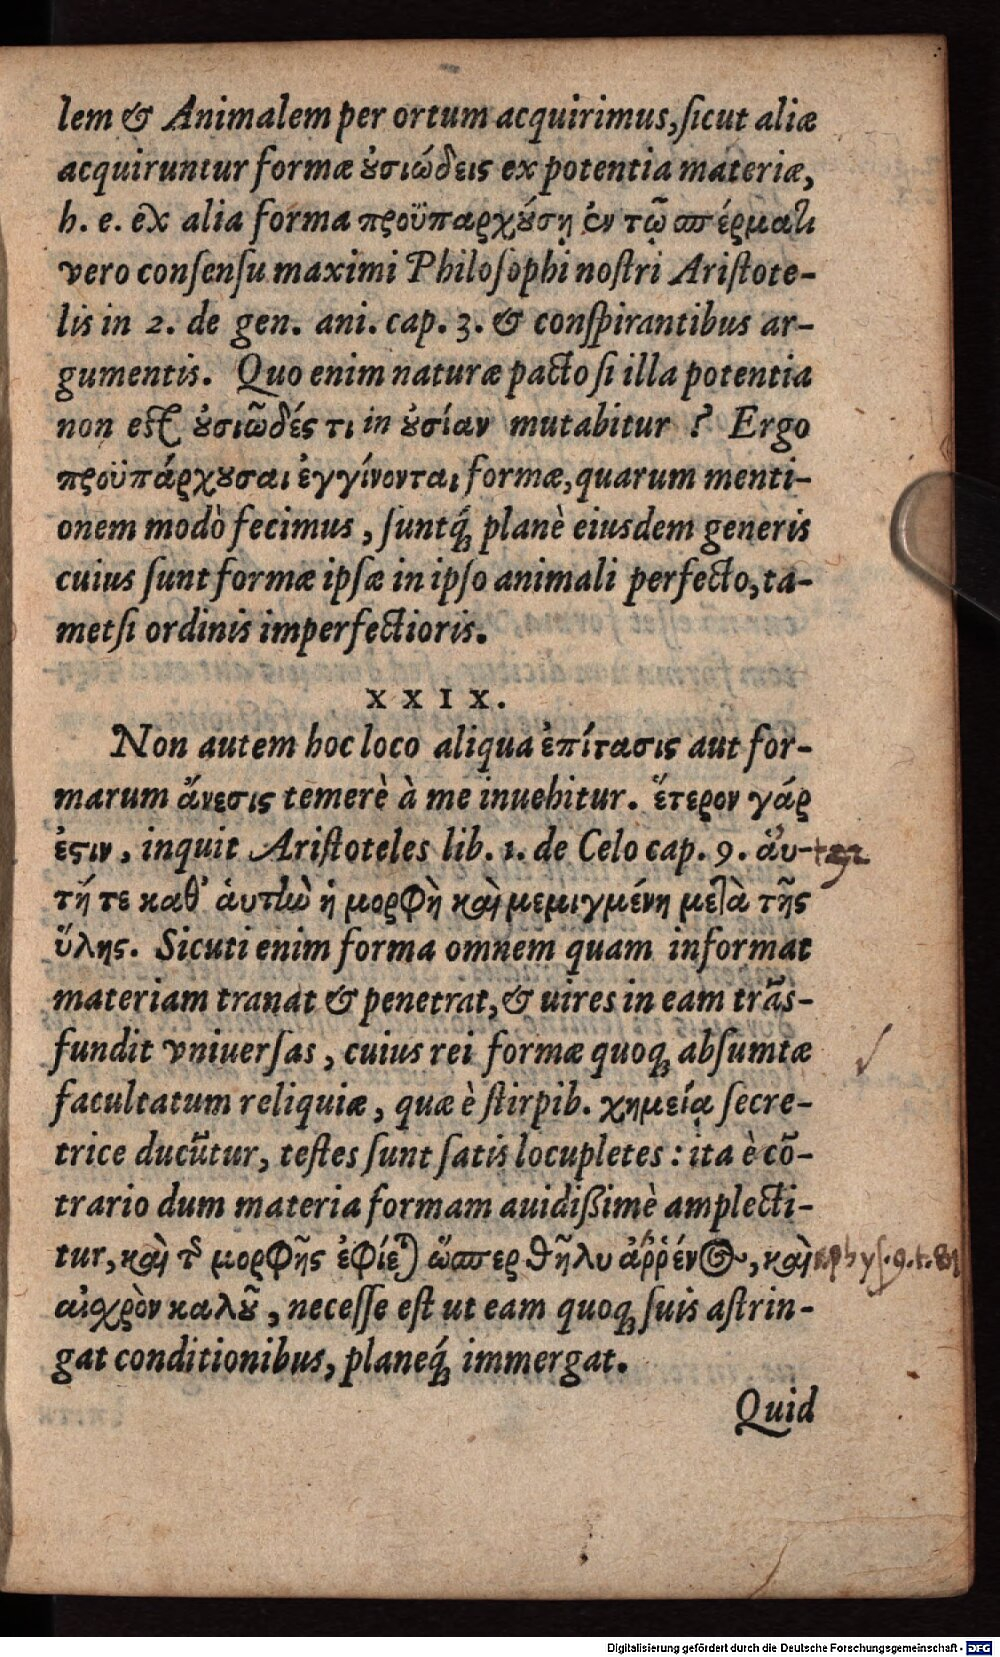 lem & Animalem per ortum acquirimus, ſicut aliæ
acquiruntur formæ ȣ̓σιώδεις ex potentia materiæ,
h. e. ex alia forma προϋπαρχȣ́σῃ ἐν τῷ σπέρματι
vero conſenſu maximi Philoſophi noſtri Ariſtote-
lis in 2. de gen. ani. cap. 3. & conſpirantibus ar-
gumentis. Quo enim naturæ pacto ſi illa potentia
non eſt ȣ̓σιῶδές τι in ȣ̓σίαν mutabitur ? Ergo
προϋπάρχȣσαι ἐγγίνονται formæ, quarum menti-
onem modò fecimus, ſuntq́ꝫ planè eiusdem generis
cuius ſunt formæ ipſæ in ipſo animali perfecto, ta-
metſi ordinis imperfectioris.
XXIX.
Non autem hoc loco aliqua ἐπίτασις aut for-
marum ἄνεσις temerè à me inuehitur. ἕτερον γάρ
ἐϛιν, inquit Ariſtoteles lib. 1. de Celo cap. 9. ἀυ-
τή τε καθ᾽ ἁυτὼ ἡ μορφὴ καὶ μεμιγμένη μετὰ τῆς
ὕλης. Sicuti enim forma omnem quam informat
materiam tranat & penetrat, & uires in eam trãs-
fundit vniuerſas, cuius rei formæ quoqꝫ abſumtæ
facultatum reliquiæ, quæ è ſtirpib. χημείᾳ ſecre-
trice ducũtur, teſtes ſunt ſatis locupletes: ita è cõ-
trario dum materia formam auidiſſimè amplecti-
tur, καὶ τῆς μορφῆς ἐφίεται ὥσπερ θῆλυ ἀῤῥένος, καὶ phyſ. 9. t. 81
αἰχρὸν καλȣ͂, neceſſe eſt ut eam quoqꝫ ſuis aſtrin-
gat conditionibus, planeq́ꝫ immergat.
Quid
Digitalisierung gefördert durch die Deutsche Forschungsgemeinschaft - DFG